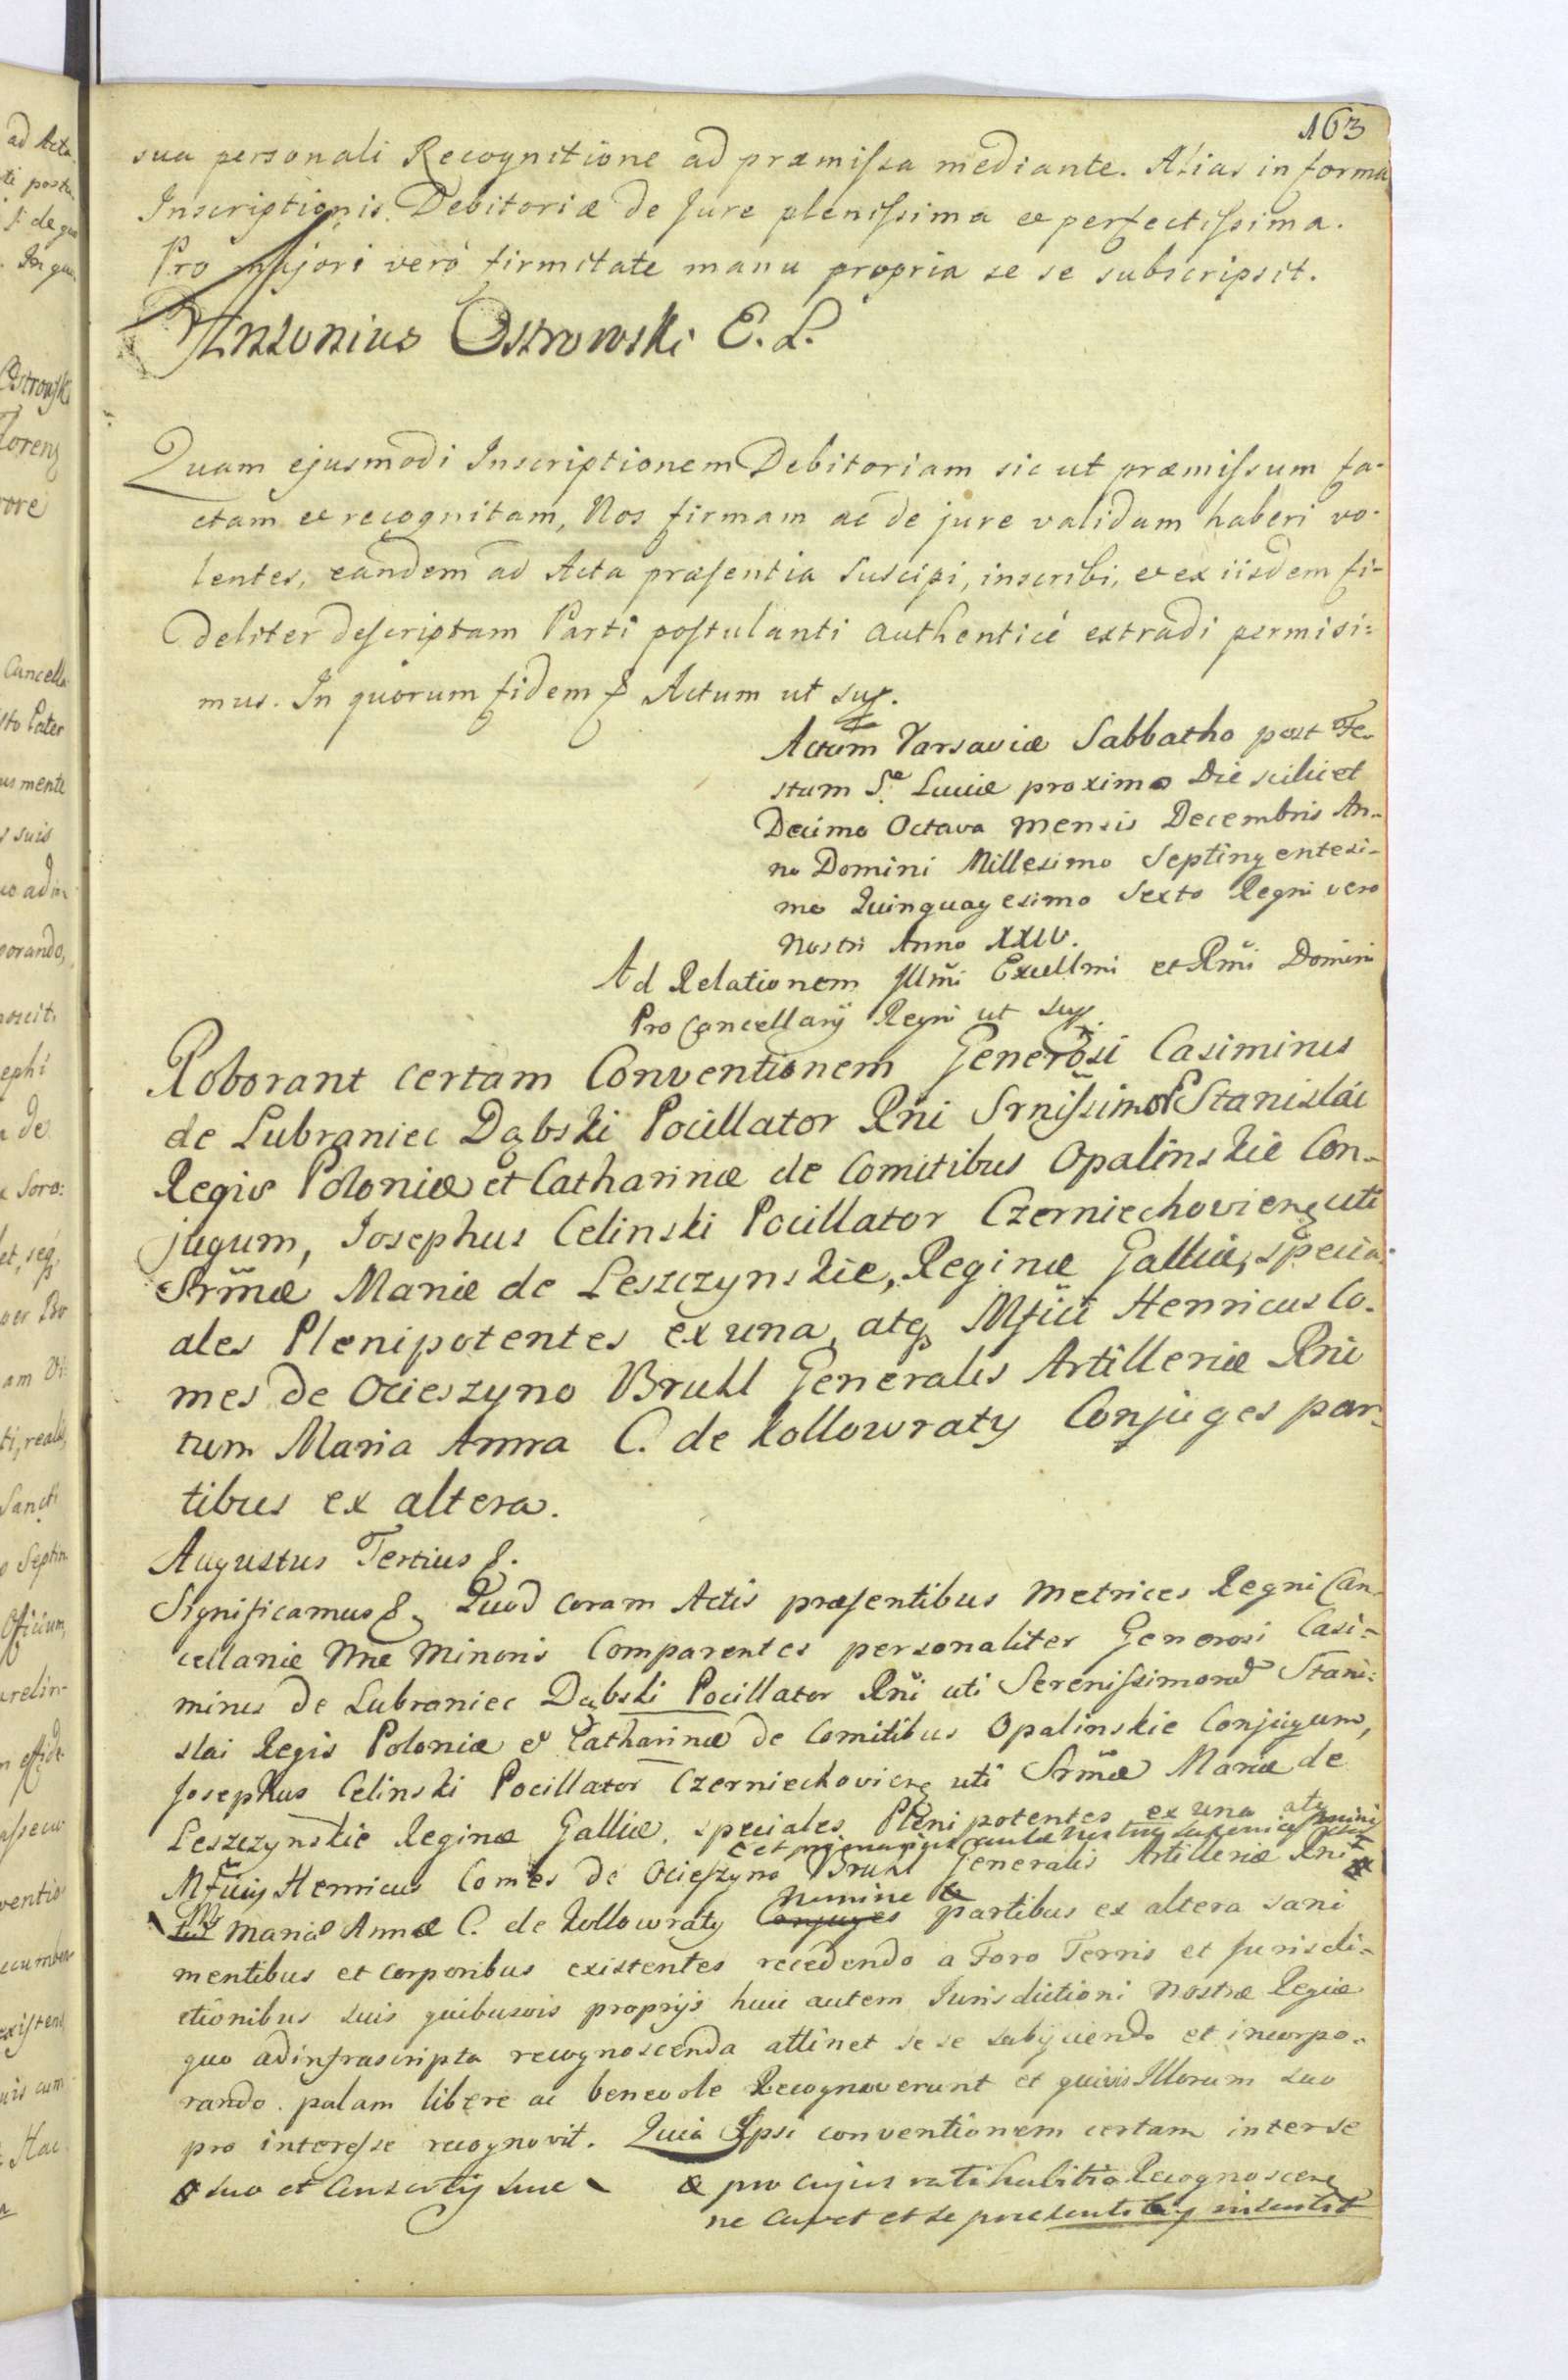 163
sua personali Recognitione ad præmissa mediante. Alias in forma
Inscriptionis Debitoriæ de Jure plenissima et perfectissima.
Pro majori verò firmitate manu propria se se subscripsit.
Antonius Ostrowski E. L.
Quam ejusmodi Inscriptionem Debitoriam sic ut præmissum fa-
ctam et recognitam, Nos firmam ac de jure validam haberi vo-
lentes, eandem ad Acta præsentia suscipi, inscribi, et ex iisdem fi-
deliter descriptam Parti postulanti authenticè extradi permisi-
mus. In quorum fidem & Actum ut sup.
Actum Varsaviæ Sabbatho post Fe-
stum S.æ Luciæ proximo Die scilicet
Decima Octava Mensis Decembris An-
no Domini Millesimo Septingentesi-
mo Quinquagesimo Sexto Regni vero
Nostri Anno XXIV.
Ad Relationem Illmi Excellmi et Rmi Domini
Pro Cancellarij Regni ut sup.
Roborant certam Conventionem Generosi Casimirus
de Lubraniec Dąbski Pocillator Rni Srnissimor Stanislai
Regis Poloniæ et Catharinæ de Comitibus Opalinskie Con-
jugum, Josephus Celinski Pocillator Czerniechoviens uti
Srmæ Mariæ de Leszczynskie, Reginæ Galliæ, speci-
ales Plenipotentes ex una, atq Mfici Henricus Co-
mes de Ocieszyno Bruhl Generalis Artilleriæ Rni
tum Maria Anna C. de Kollowraty Conjuges par-
tibus ex altera.
Augustus Tertius &.
Significamus & Quod coram Actis præsentibus Metrices Regni Can-
cellariæ Nræ Minoris Comparentes personaliter Generosi Casi-
mirus de Lubraniec Dąbski Pocillator Rni uti Serenissimorum Stani-
slai Regis Poloniæ et Catharinæ de Comitibus Opalinskie Conjugum,
Josephus Celinski Pocillator Czerniechoviens uti Srmæ Mariæ de
Leszczynskie Reginæ Galliæ, speciales Plenipotentes ex una atq
Mficus Henricus Comes de Ocieszyno Bruhl Generalis Artilleriæ Rni
Mariæ Annæ C. de Kollowraty Conjuges nomine partibus ex altera sani
mentibus et corporibus existentes recedendo a Foro Terris et Jurisdi-
ctionibus suis quibusvis proprijs huic autem Jurisdictioni Nostræ Regiæ
quo ad infrascripta recognoscenda attinet se se subijciendo et incorpo-
rando. palam libere ac benevole Recognoverunt et quivis Illorum suo
pro interesse recognovit. Quia Ipsi conventionem certam inter se
suo et Consortis suæ
pro cujus ratihabitio Recognoscen